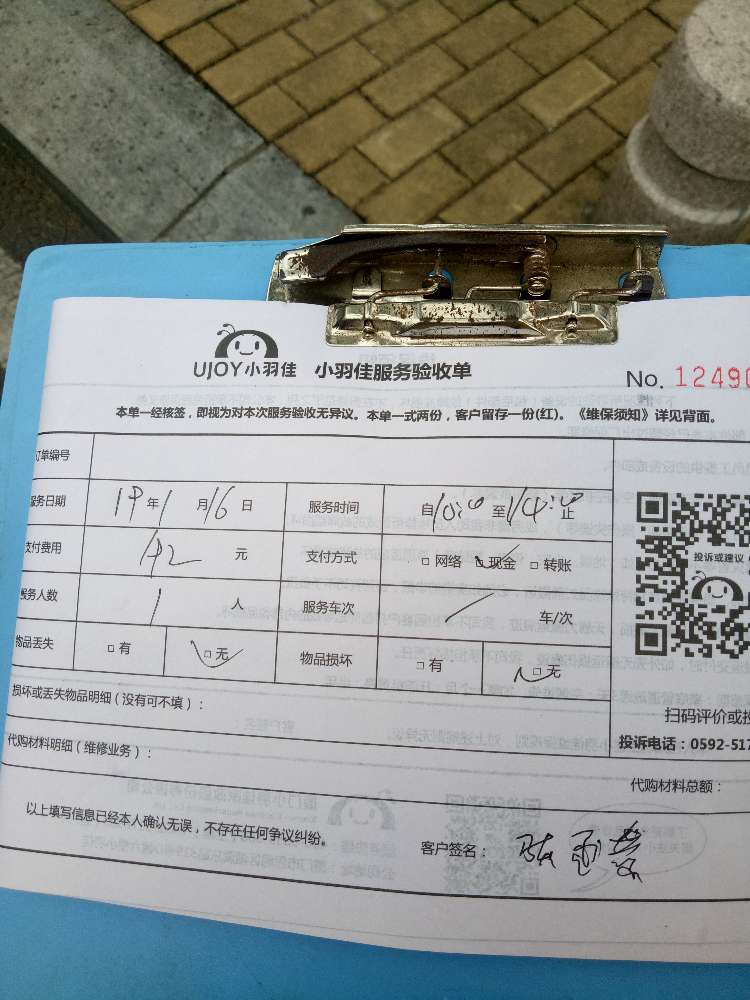 UJOY小羽佳 小羽佳服务验收单
No. 12490
本单一经核签，即视为对本次服务验收无异议。本单一式两份，客户留存一份(红)。《维保须知》详见背面。
订单编号
服务日期 19年1月16日 服务时间 自10:00至14:00止
支付费用 元 支付方式 □网络 □现金 □转账
服务人数 1 人 服务车次 / 车/次
物品丢失 □有 □无 物品损坏 □有 □无
投诉或建议
损坏或丢失物品明细（没有可不填）：
扫码评价或投
投诉电话：0592-517
代购材料明细（维修业务）：
代购材料总额：
以上填写信息已经本人确认无误，不存在任何争议纠纷。
客户签名：